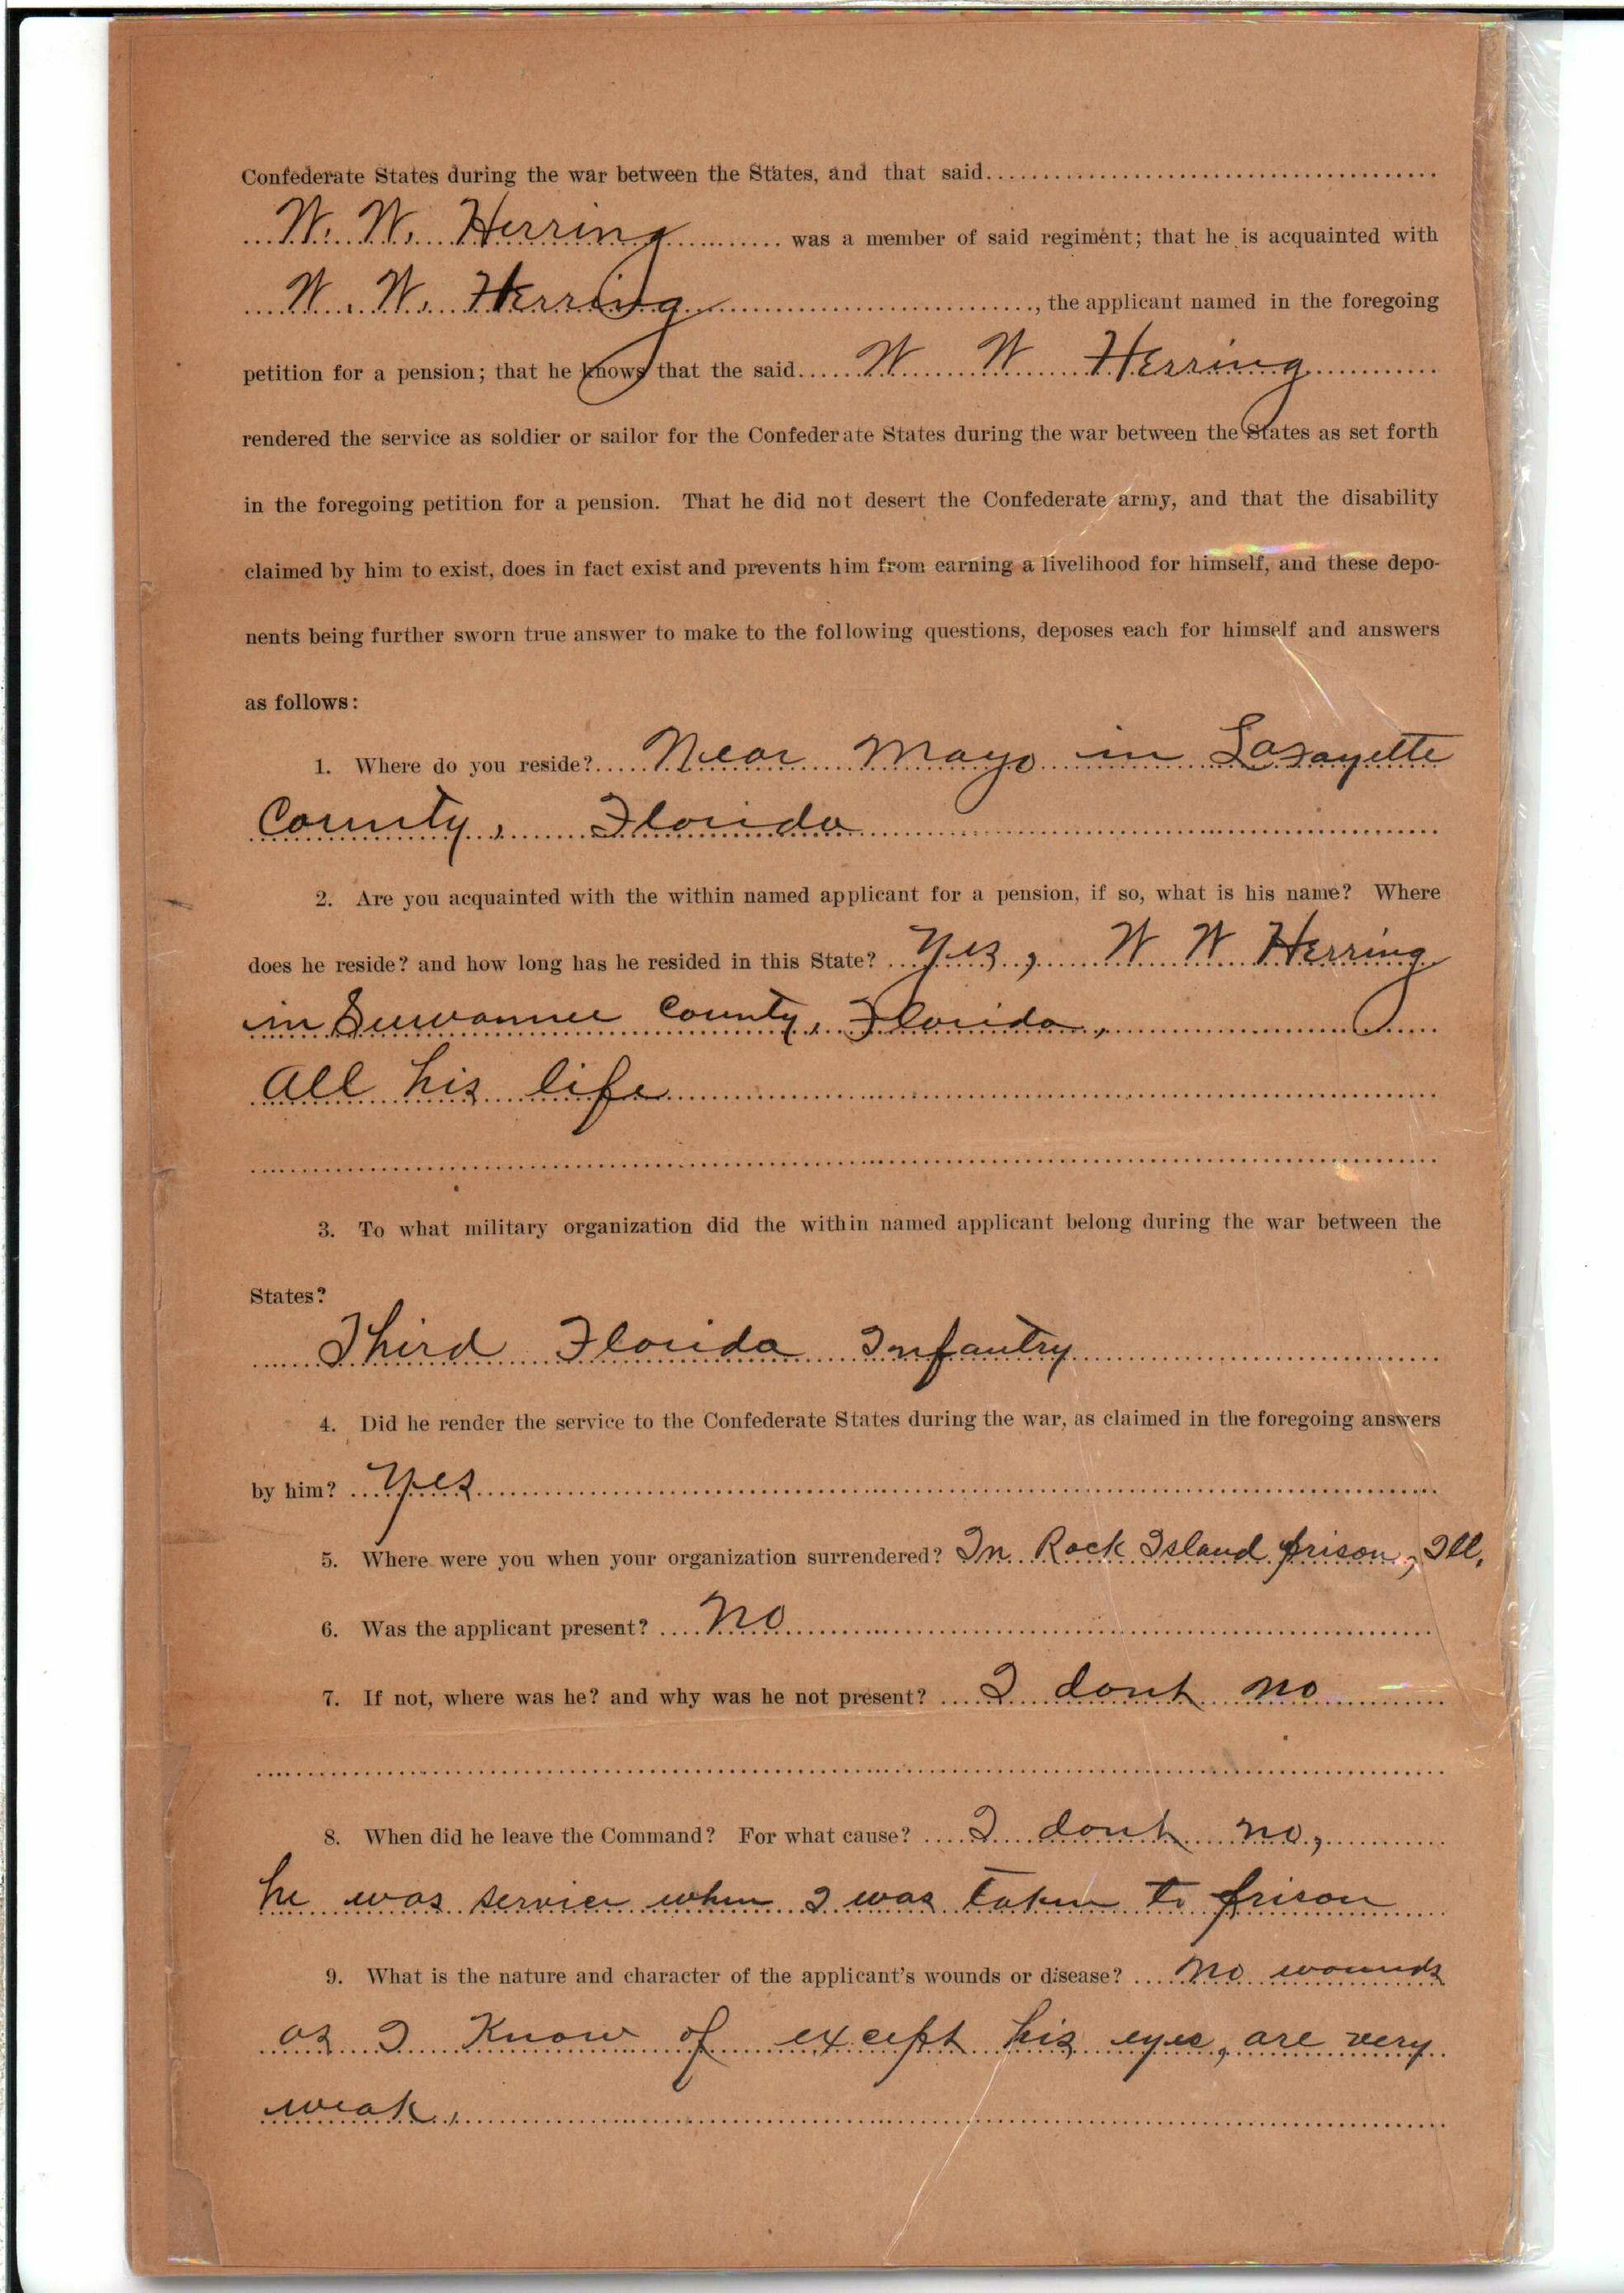 Confederate States during the war between the States, and that said
W. W. Herring was a member of said regiment; that he is acquainted with
W. W. Herring, the applicant named in the foregoing
petition for a pension; that he knows that the said W W Herring
rendered the service as soldier or sailor for the Confederate States during the war between the States as set forth
in the foregoing petition for a pension. That he did not desert the Confederate army, and that the disability
claimed by him to exist, does in fact exist and prevents him from earning a livelihood for himself, and these depo-
nents being further sworn true answer to make to the following questions, deposes each for himself and answers
as follows:
1. Where do you reside? Near Mayo in Lafayette
County, Florida
2. Are you acquainted with the within named applicant for a pension, if so, what is his name? Where
does he reside? and how long has he resided in this State? Yes, W W Herring
in Suwannee County, Florida,
All his life
3. To what military organization did the within named applicant belong during the war between the
States?
Third Florida Infantry
4. Did he render the service to the Confederate States during the war, as claimed in the foregoing answers
by him? Yes
5. Where were you when your organization surrendered? In Rock Island prison, Ill.
6. Was the applicant present? No
7. If not, where was he? and why was he not present? I dont no
8. When did he leave the Command? For what cause? I dont no,
he was servier when I was taken to prison
9. What is the nature and character of the applicant's wounds or disease? No wounds
as I Know of except his eyes, are very
weak.